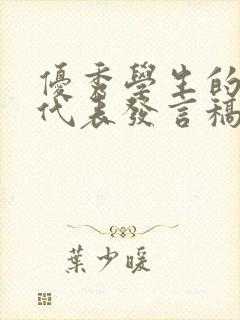 優秀學生的
代表發言稿
葉少暖